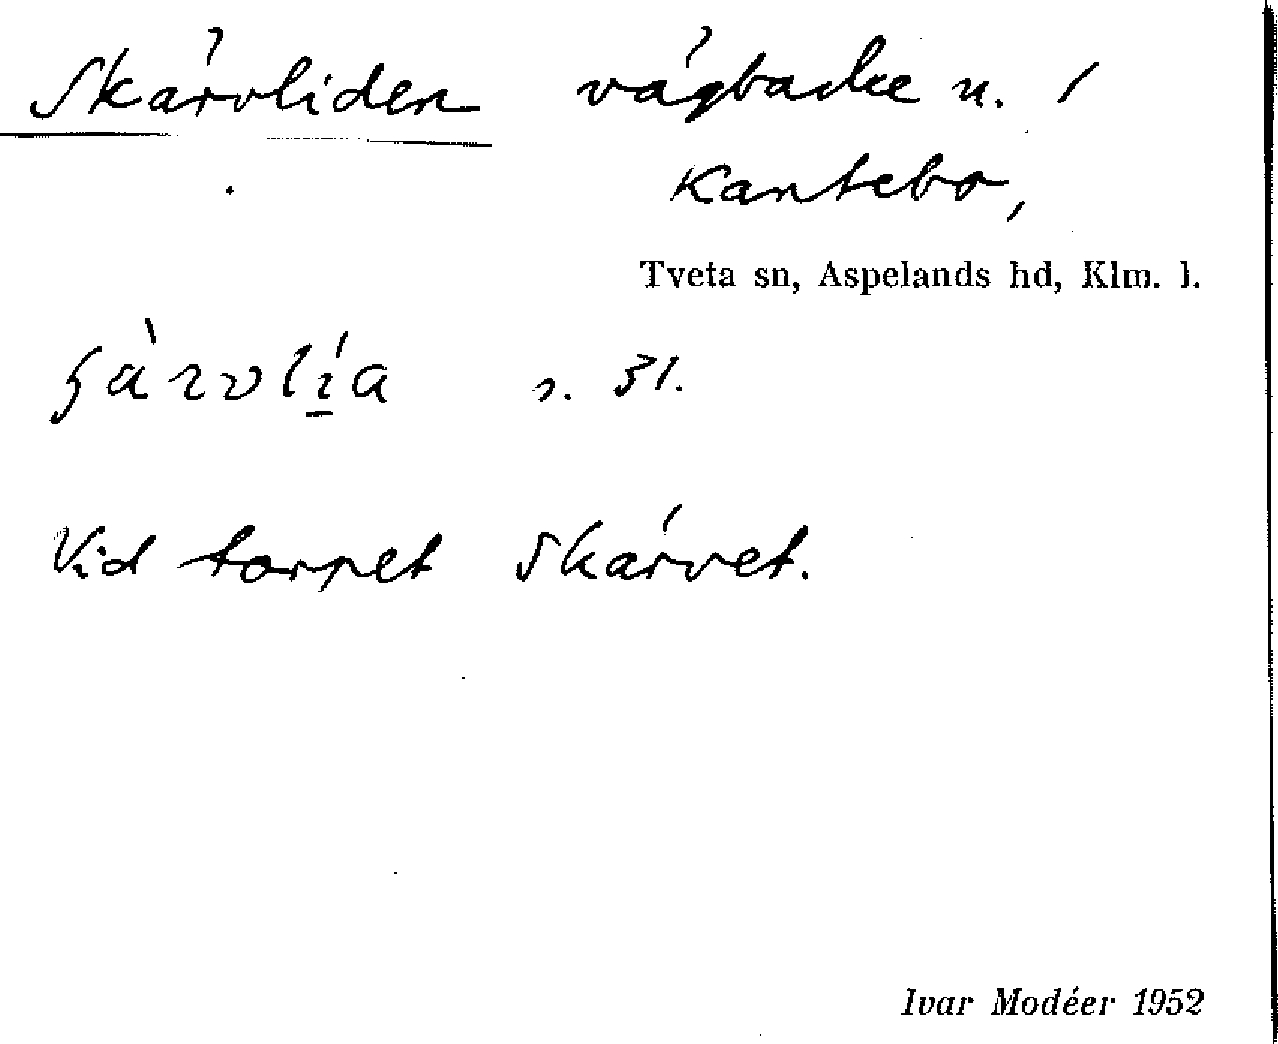 Skärvliden vägbacke u. /
Kantebo,
Tveta sn, Aspelands hd, Klm. l.
s. 31.
Vid torpet Skärvet.
Ivar Modéer 1952